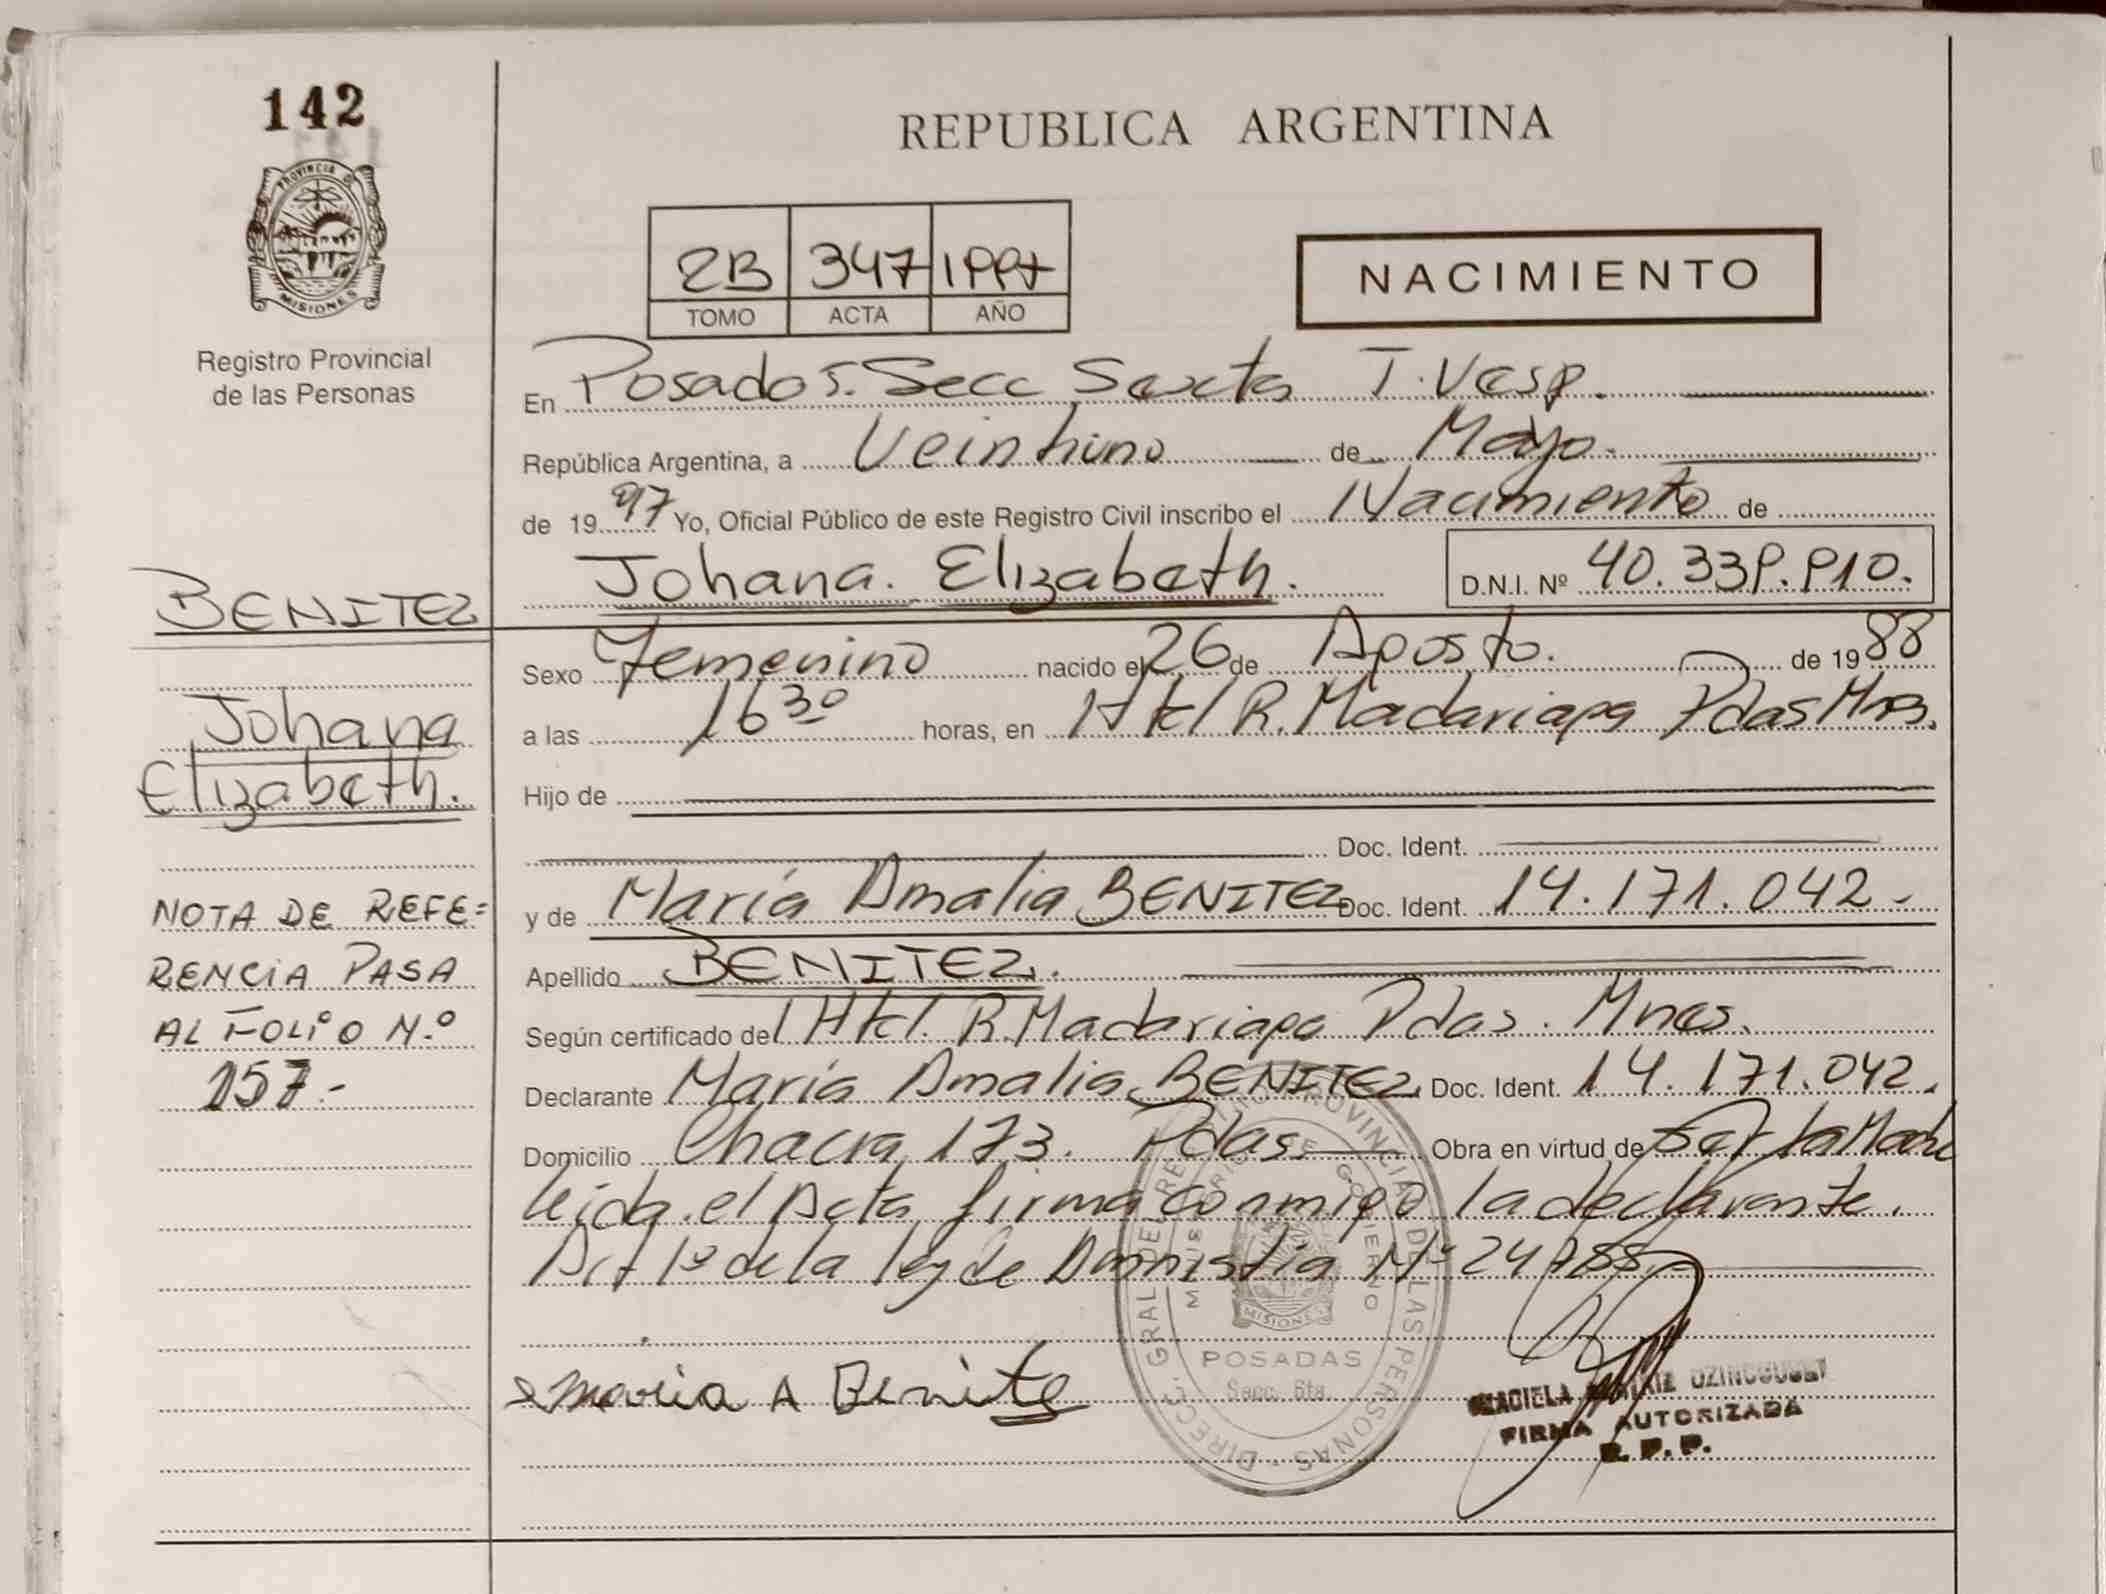 142
PROVINCIA DE
MISIONES
Registro Provincial
de las Personas
REPUBLICA ARGENTINA
2B 347 1997
TOMO ACTA AÑO
NACIMIENTO
En Posadas. Secc Sexta T. Vesp.
República Argentina, a Veintiuno de Mayo.
de 1997 Yo, Oficial Público de este Registro Civil inscribo el Nacimiento de
Johana. Elizabeth. D.N.I. Nº 40.339.910.
BENITEZ
Johana
Elizabeth.
NOTA DE REFE=
RENCIA PASA
AL FOLIO N.º
157.-
Sexo Femenino nacido el 26 de Agosto. de 1988
a las 16 30 horas, en Htal R. Madariaga Pdas Mnes.
Hijo de
Doc. Ident.
y de María Amalia BENITEZ Doc. Ident. 14.171.042.-
Apellido BENITEZ.
Según certificado del Htal. R. Madariaga Pdas. Mnes.
Declarante María Amalia BENITEZ Doc. Ident. 14.171.042.
Domicilio Chacra 173. Pdas. Obra en virtud de Ser la Madre
leida el Acta firma conmigo la declarante.
Art 1º de la ley de Amnistía Nº 24755
maria A Benite
DIRECC. GRAL DEL REGISTRO PROVINCIAL DE LAS PERSONAS
MINISTERIO DE GOBIERNO
MISIONES
POSADAS
Secc. 6ta.
GRACIELA BEATRIZ
FIRMA AUTORIZADA
R. P. P.